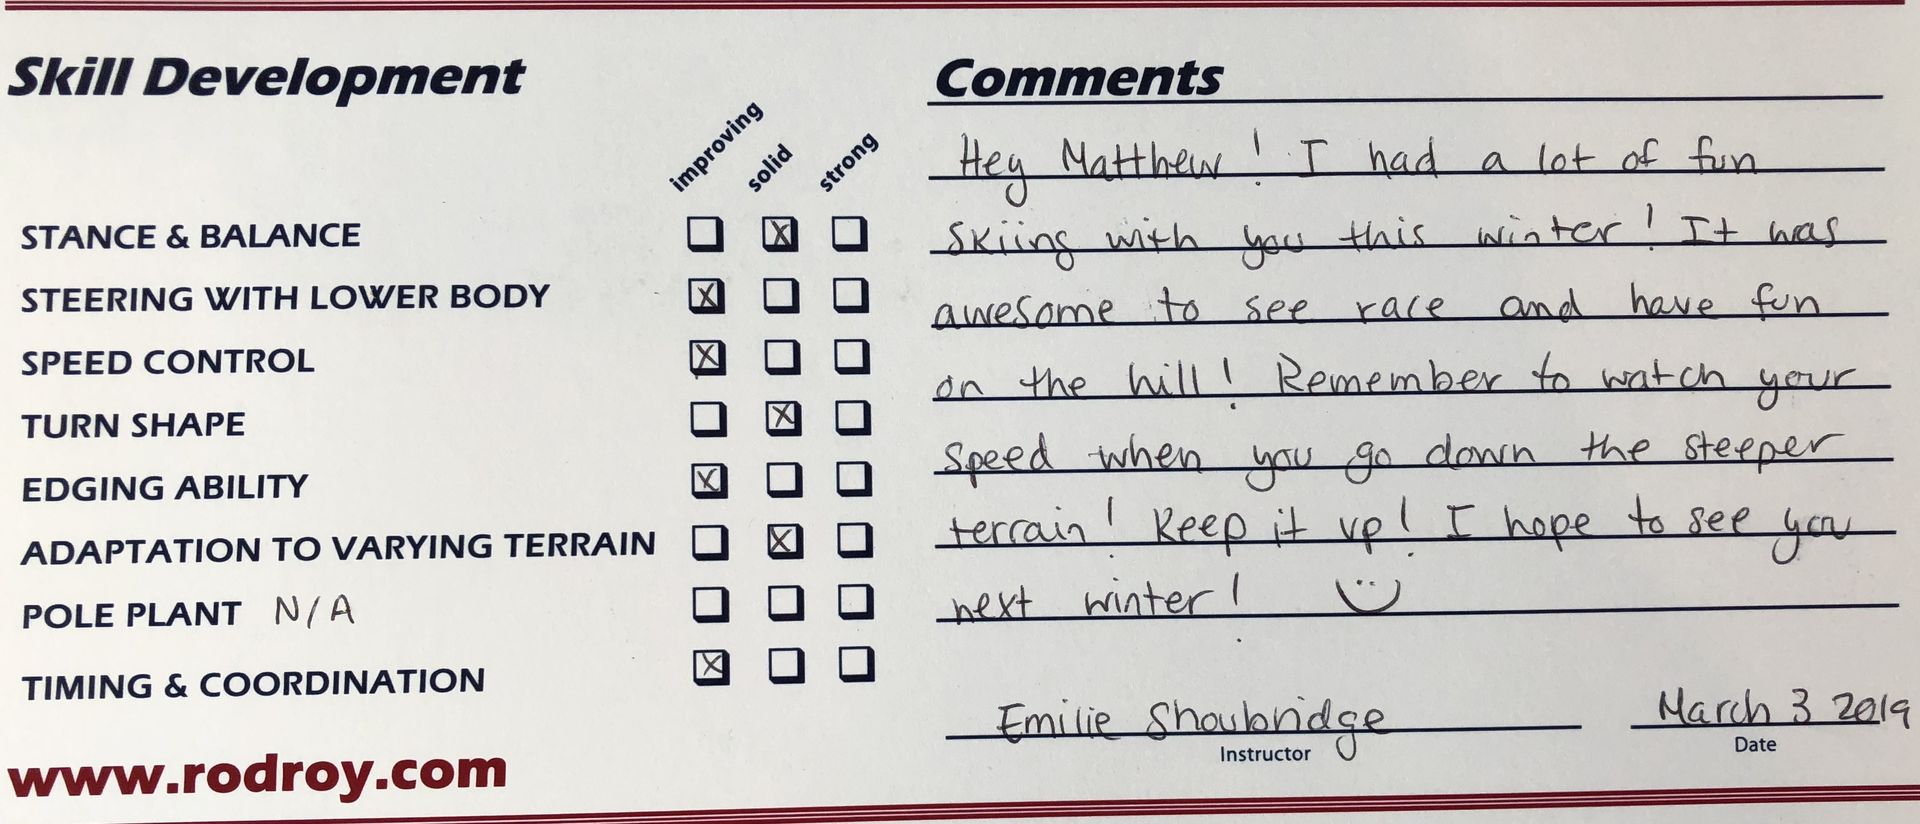 Skill Development
improving solid strong
STANCE & BALANCE
STEERING WITH LOWER BODY
SPEED CONTROL
TURN SHAPE
EDGING ABILITY
ADAPTATION TO VARYING TERRAIN
POLE PLANT N/A
TIMING & COORDINATION
www.rodroy.com
Comments
Hey Matthew! I had a lot of fun
skiing with you this winter! It was
awesome to see race and have fun
on the hill! Remember to watch your
speed when you go down the steeper
terrain! Keep it up! I hope to see you
next winter!
Emilie Shoubridge
Instructor
March 3 2019
Date